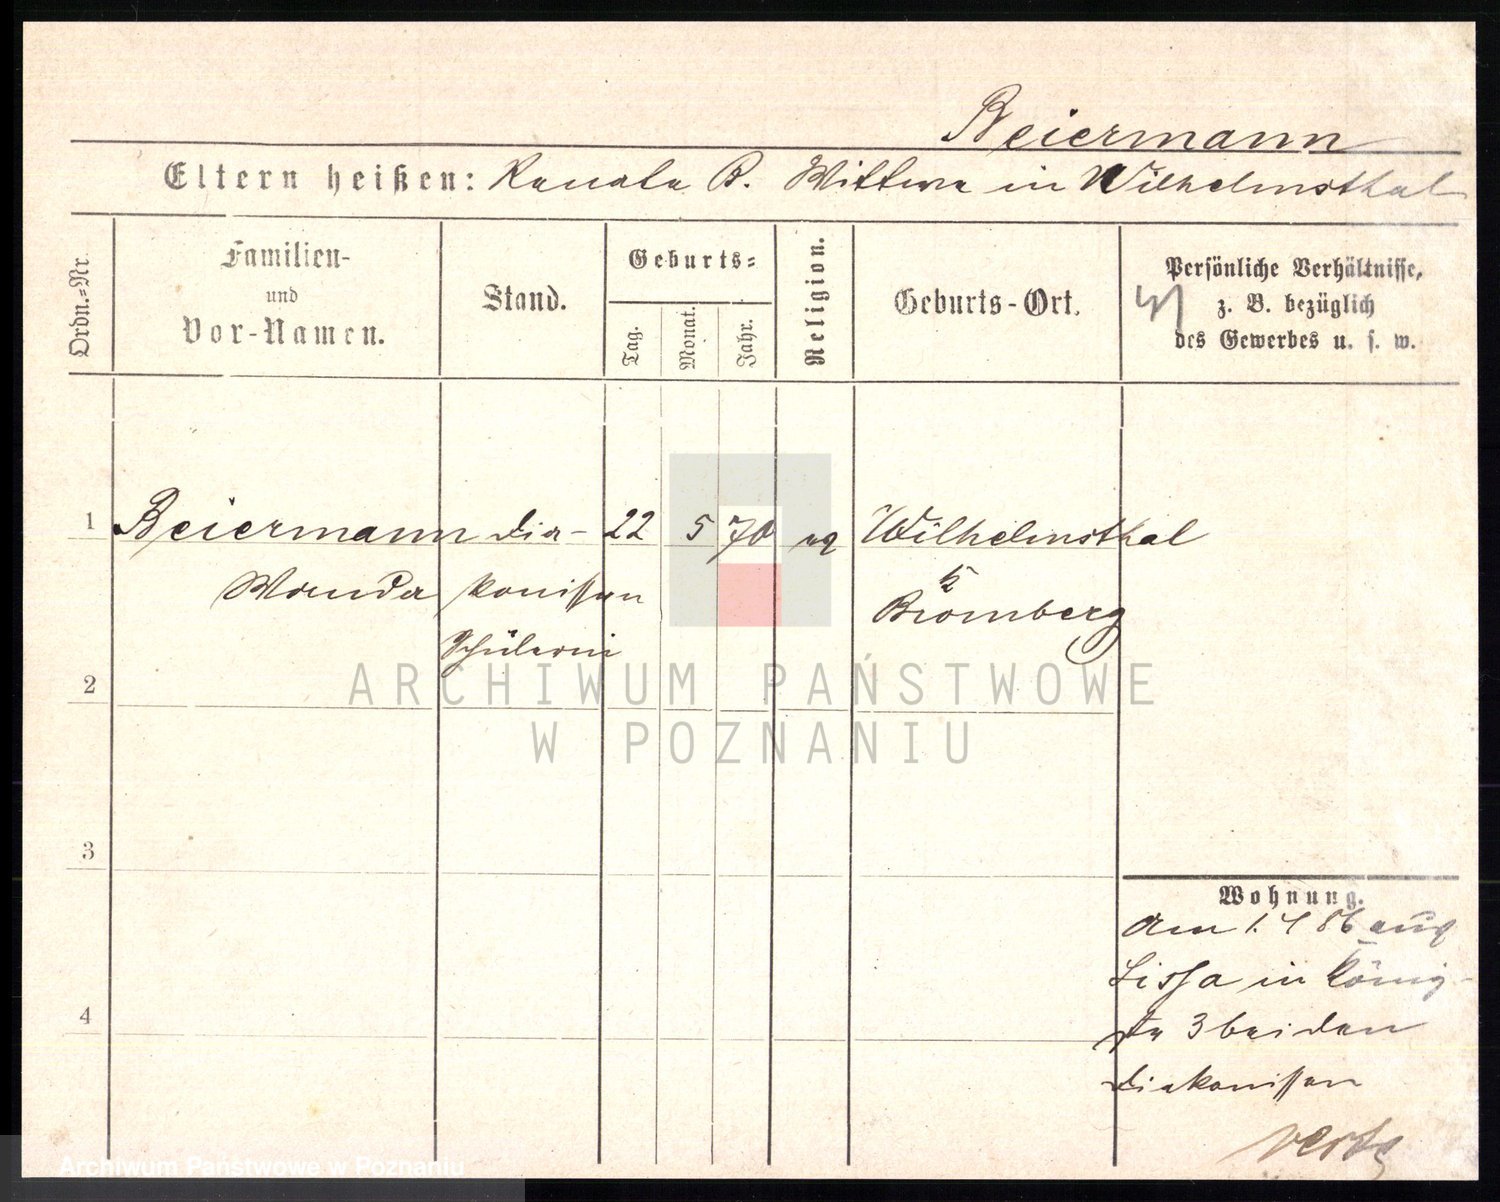 Beiermann
Eltern heißen: Renate B. Wittwe in Wilhelmsthal
Ordn.=Nr.
Familien-
und
Vor-Namen.
Stand.
Geburts=
Tag.
Monat.
Jahr.
Religion.
Geburts-Ort.
Persönliche Verhältnisse,
z. B. bezüglich
des Gewerbes u. s. w.
1 Beiermann Dia- 22 5 70 ev Wilhelmsthal
Wanda konissen
Bromberg
Schülerin
2
ARCHIWUM PAŃSTWOWE
W POZNANIU
3
Wohnung.
Am 1. 4 86 aus
Lissa in König-
4
str 3 bei den
Diakonissen
Archiwum Państwowe w Poznaniu